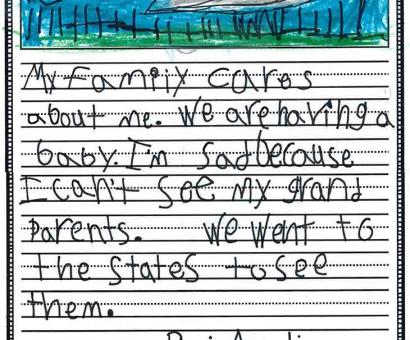 My Family cares
about me. We are having a
baby. I'm sad because
I can't see my grand
parents. We went to
the states to see
them.